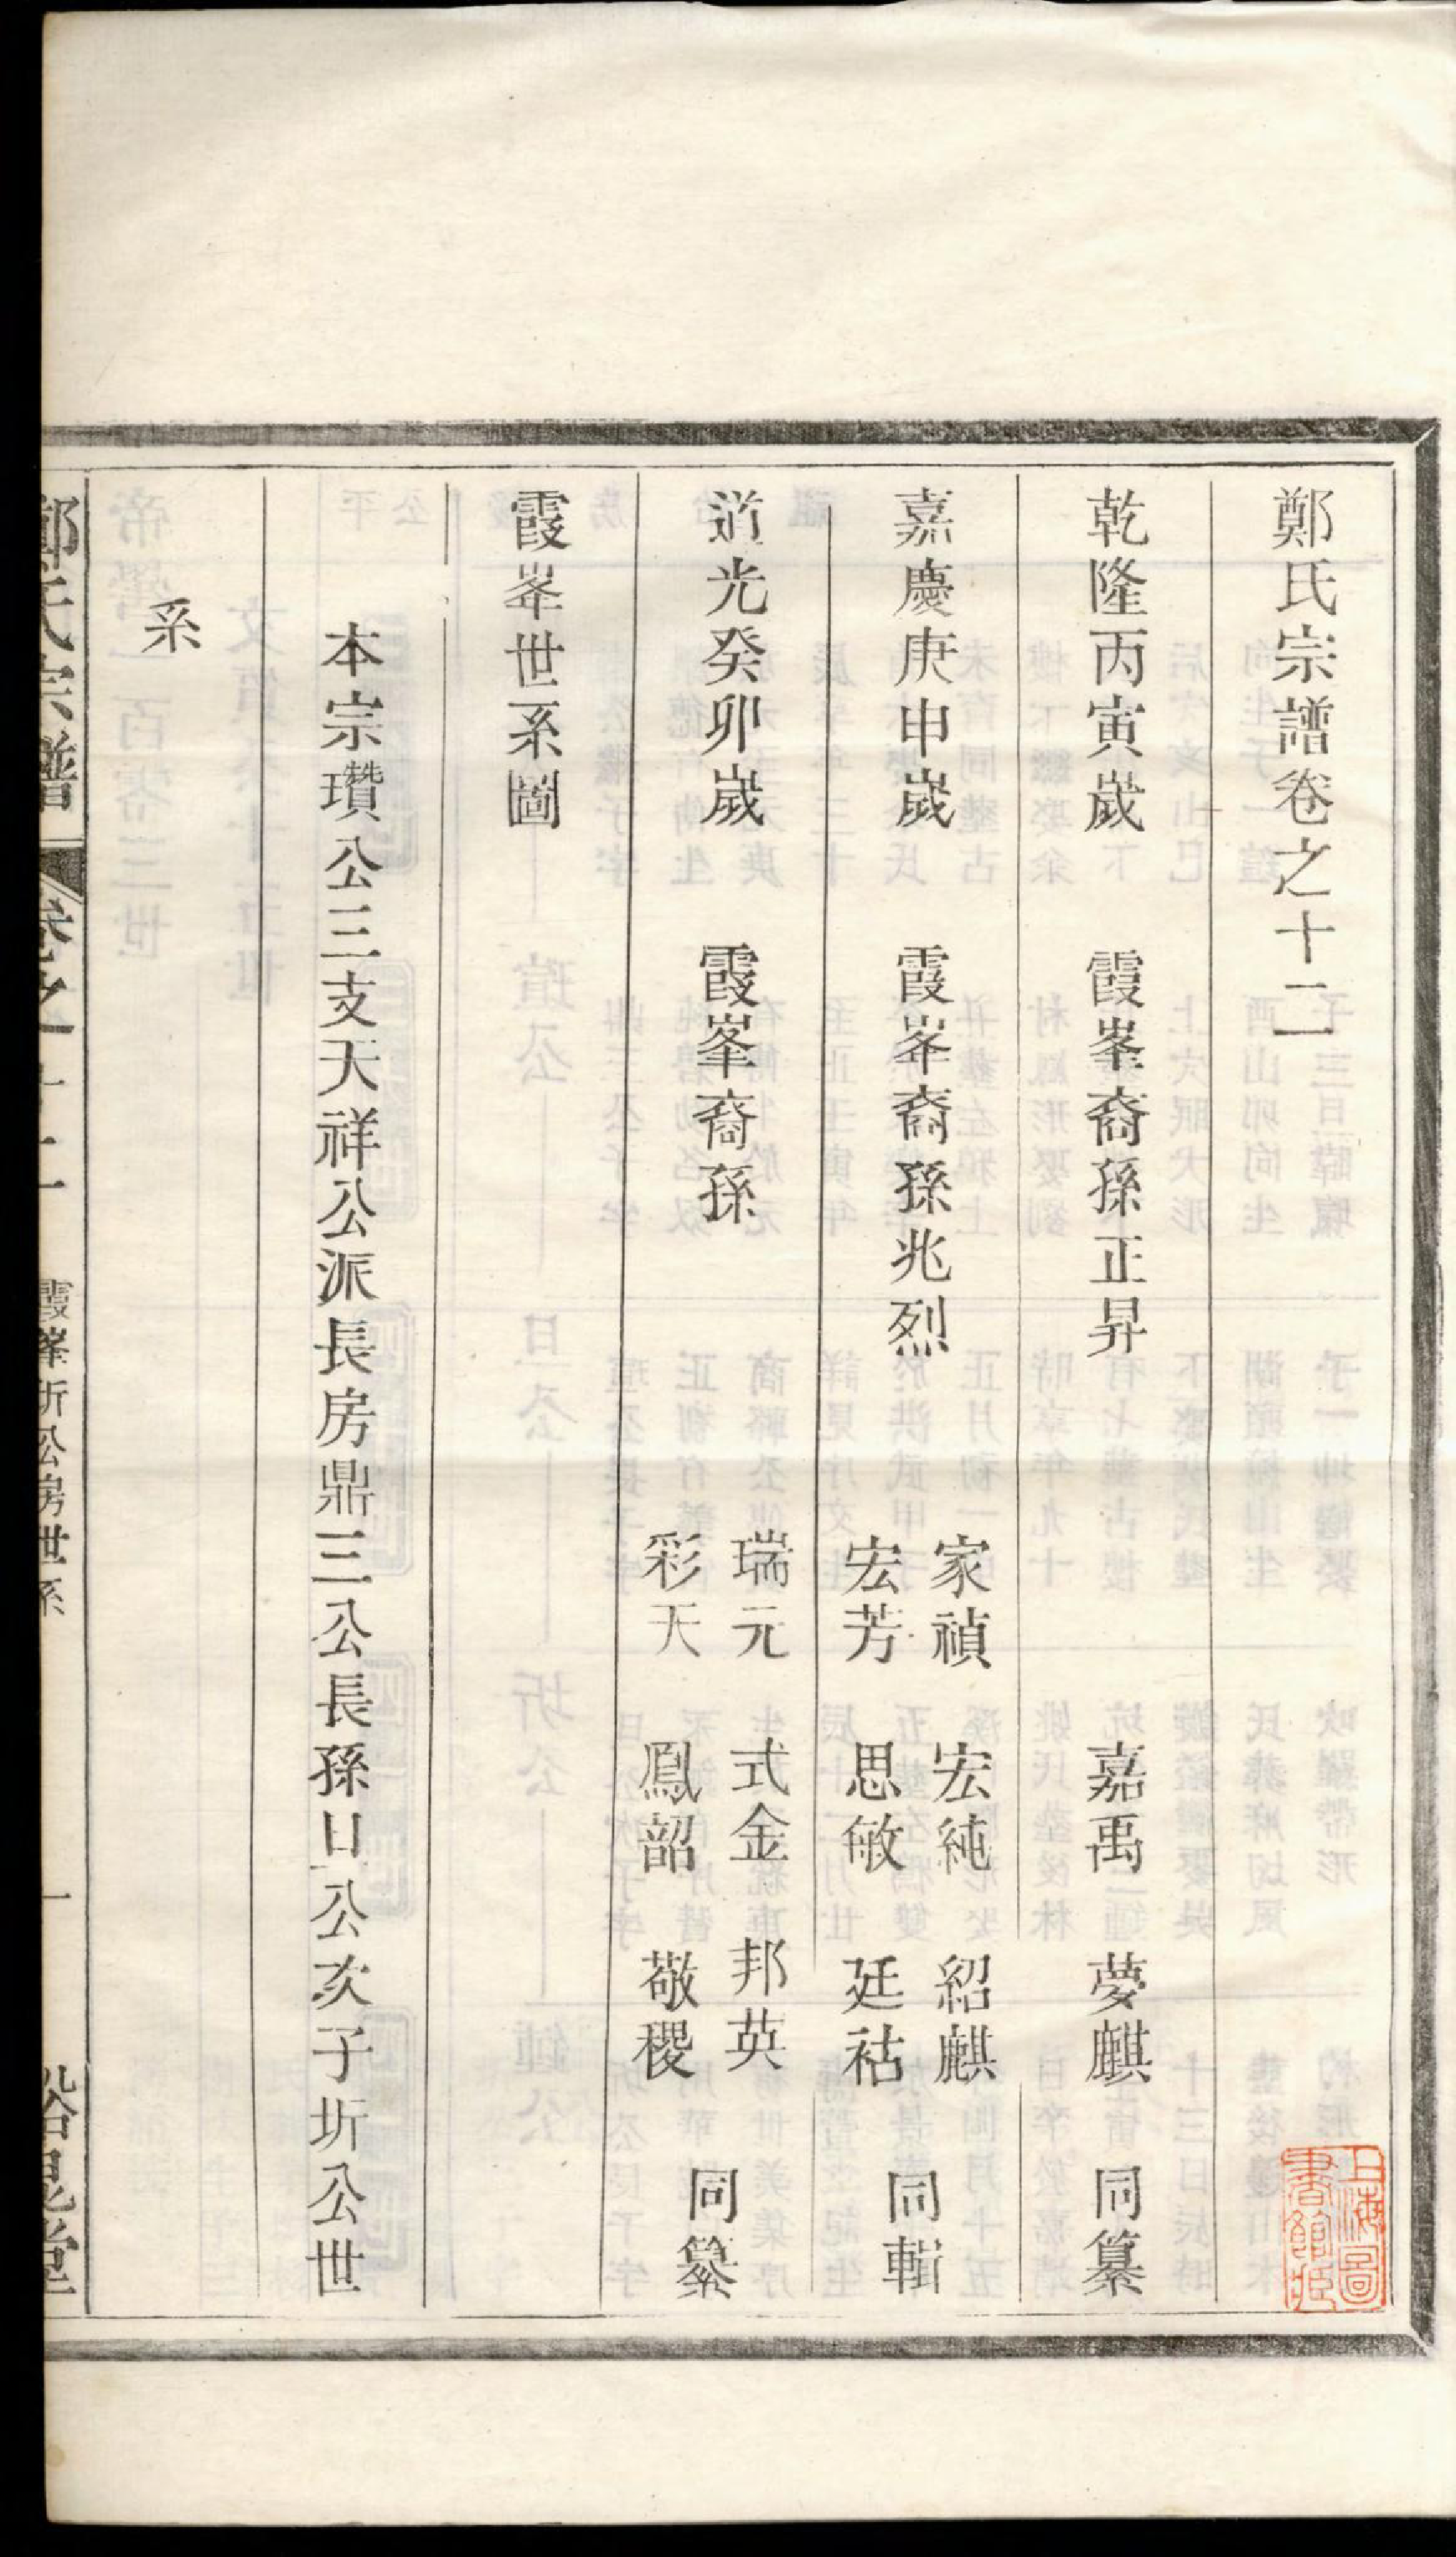 鄭氏宗譜卷之十二
乾隆丙寅歲 霞峯裔孫正昇 嘉禹 夢麒 同纂
嘉慶庚申歲 霞峯裔孫兆烈 家禎 宏純 紹麒
宏芳 思敏 廷祜 同輯
道光癸卯歲 霞峯裔孫 瑞元 式金 邦英
彩天 鳳韶 敬稷 同纂
霞峯世系圖
本宗瓚公三支天祥公派長房鼎三公長孫日公次子圻公世
系
鄭氏宗譜 卷之十二 霞峯圻公房世系 一
上海圖書館藏